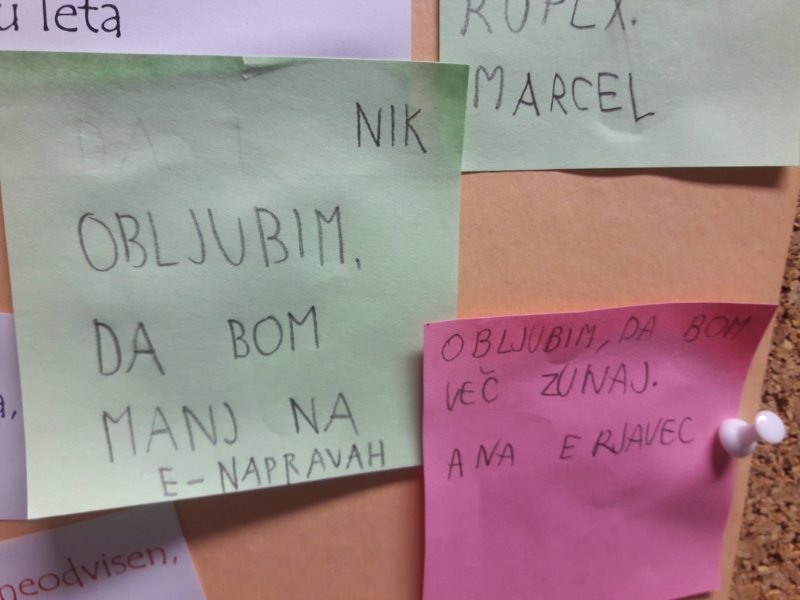 u leta
MARCEL
NIK
OBLJUBIM,
DA BOM
MANJ NA
E-NAPRAVAH
OBLJUBIM, DA BOM
VEČ ZUNAJ.
ANA ERJAVEC
neodvisen,